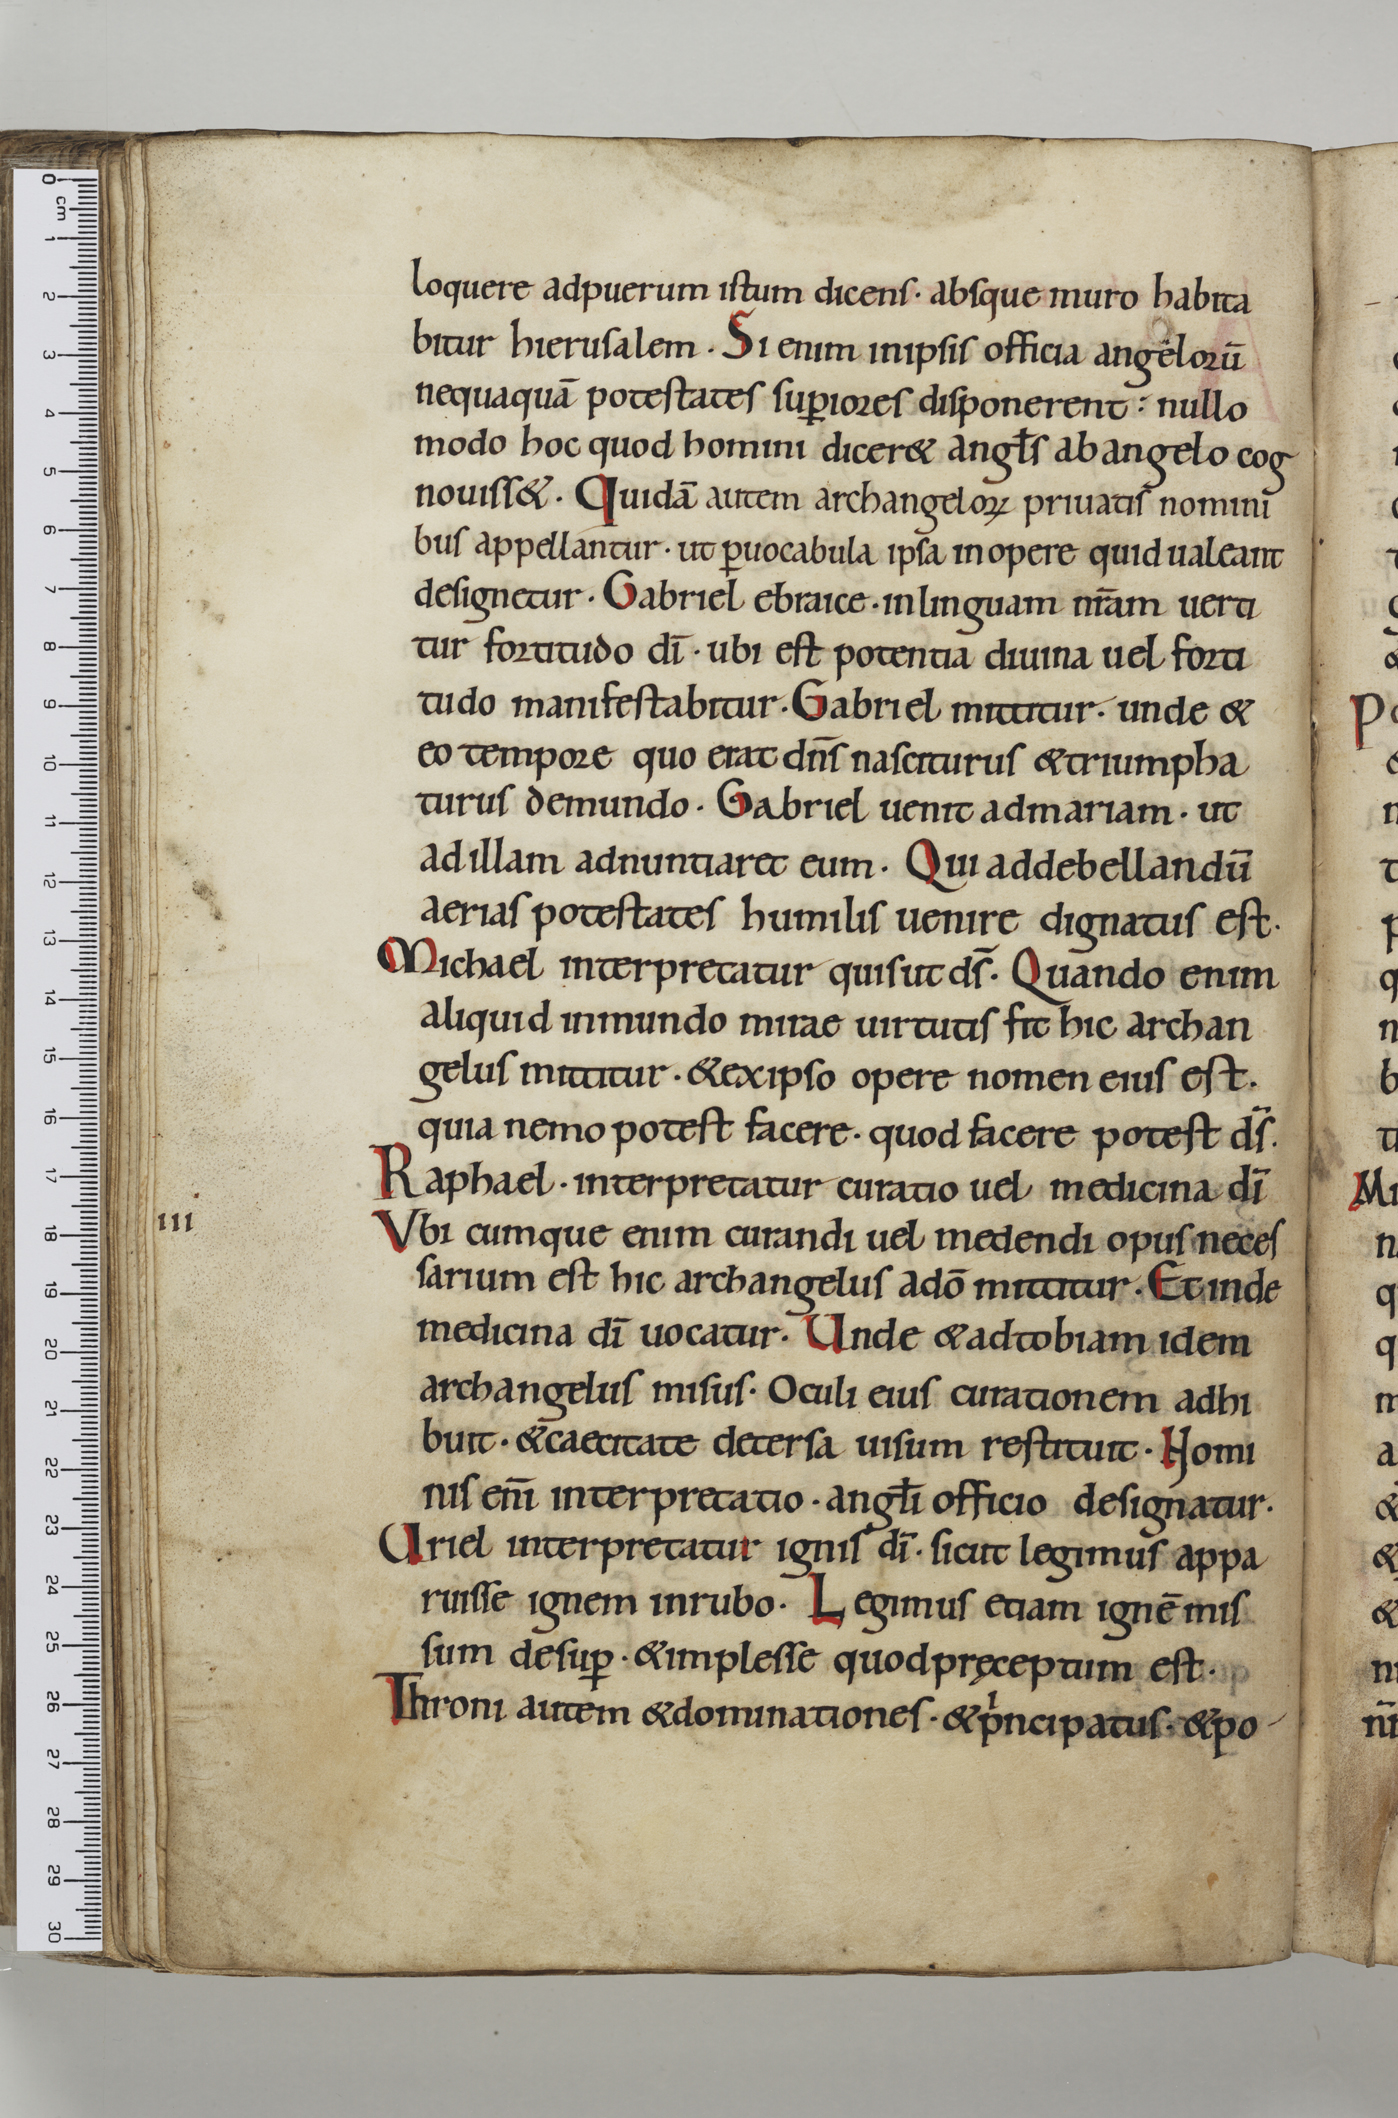 loquere adpuerum istum dicens· absque muro habita
bitur hierusalem· Si enim inipsis officia angelorū
nequaquā potestates suꝑiores disponerent: nullo
modo hoc quod homini dicer& angłs ab angelo cog
nouiss&· Quidā autem archangeloꝝ priuatis nomini
bus appellantur· ut ꝑuocabula ipsa inopere quid ualeant
designetur· Gabriel ebraice· inlinguam nr̄am uerti
tur fortitudo dī· ubi est potentia diuina uel forti
tudo manifestabitur· Gabriel mittitur· unde &
eo tempore quo erat dn̄s nasciturus &triumpha
turus demundo· Gabriel uenit admariam· ut
adillam adnuntiaret eum· Qui addebellandū
aerias potestates humilis uenire dignatus est·
Michael interpretatur quisut ds̄· Quando enim
aliquid inmundo mirae uirtutis fit hic archan
gelus mittitur· &exipso opere nomen eius est·
quia nemo potest facere· quod facere potest ds̄·
Raphael· interpretatur curatio uel medicina dī
Vbi cumque enim curandi uel medendi opus neces
III
sarium est hic archangelus adō mittitur· Et inde
medicina dī uocatur· Unde &adtobiam idem
archangelus misus· Oculi eius curationem adhi
buit· &caecitate detersa uisum restituit· Homi
nis enī interpretatio· angłi officio designatur·
Uriel interpretatur ignis dī· sicut legimus appa
ruisse ignem inrubo· Legimus etiam ignē mis
sum desuꝑ· &implesse quodpręceptum est·
Throni autem &dominationes· &pͥncipatus· &po